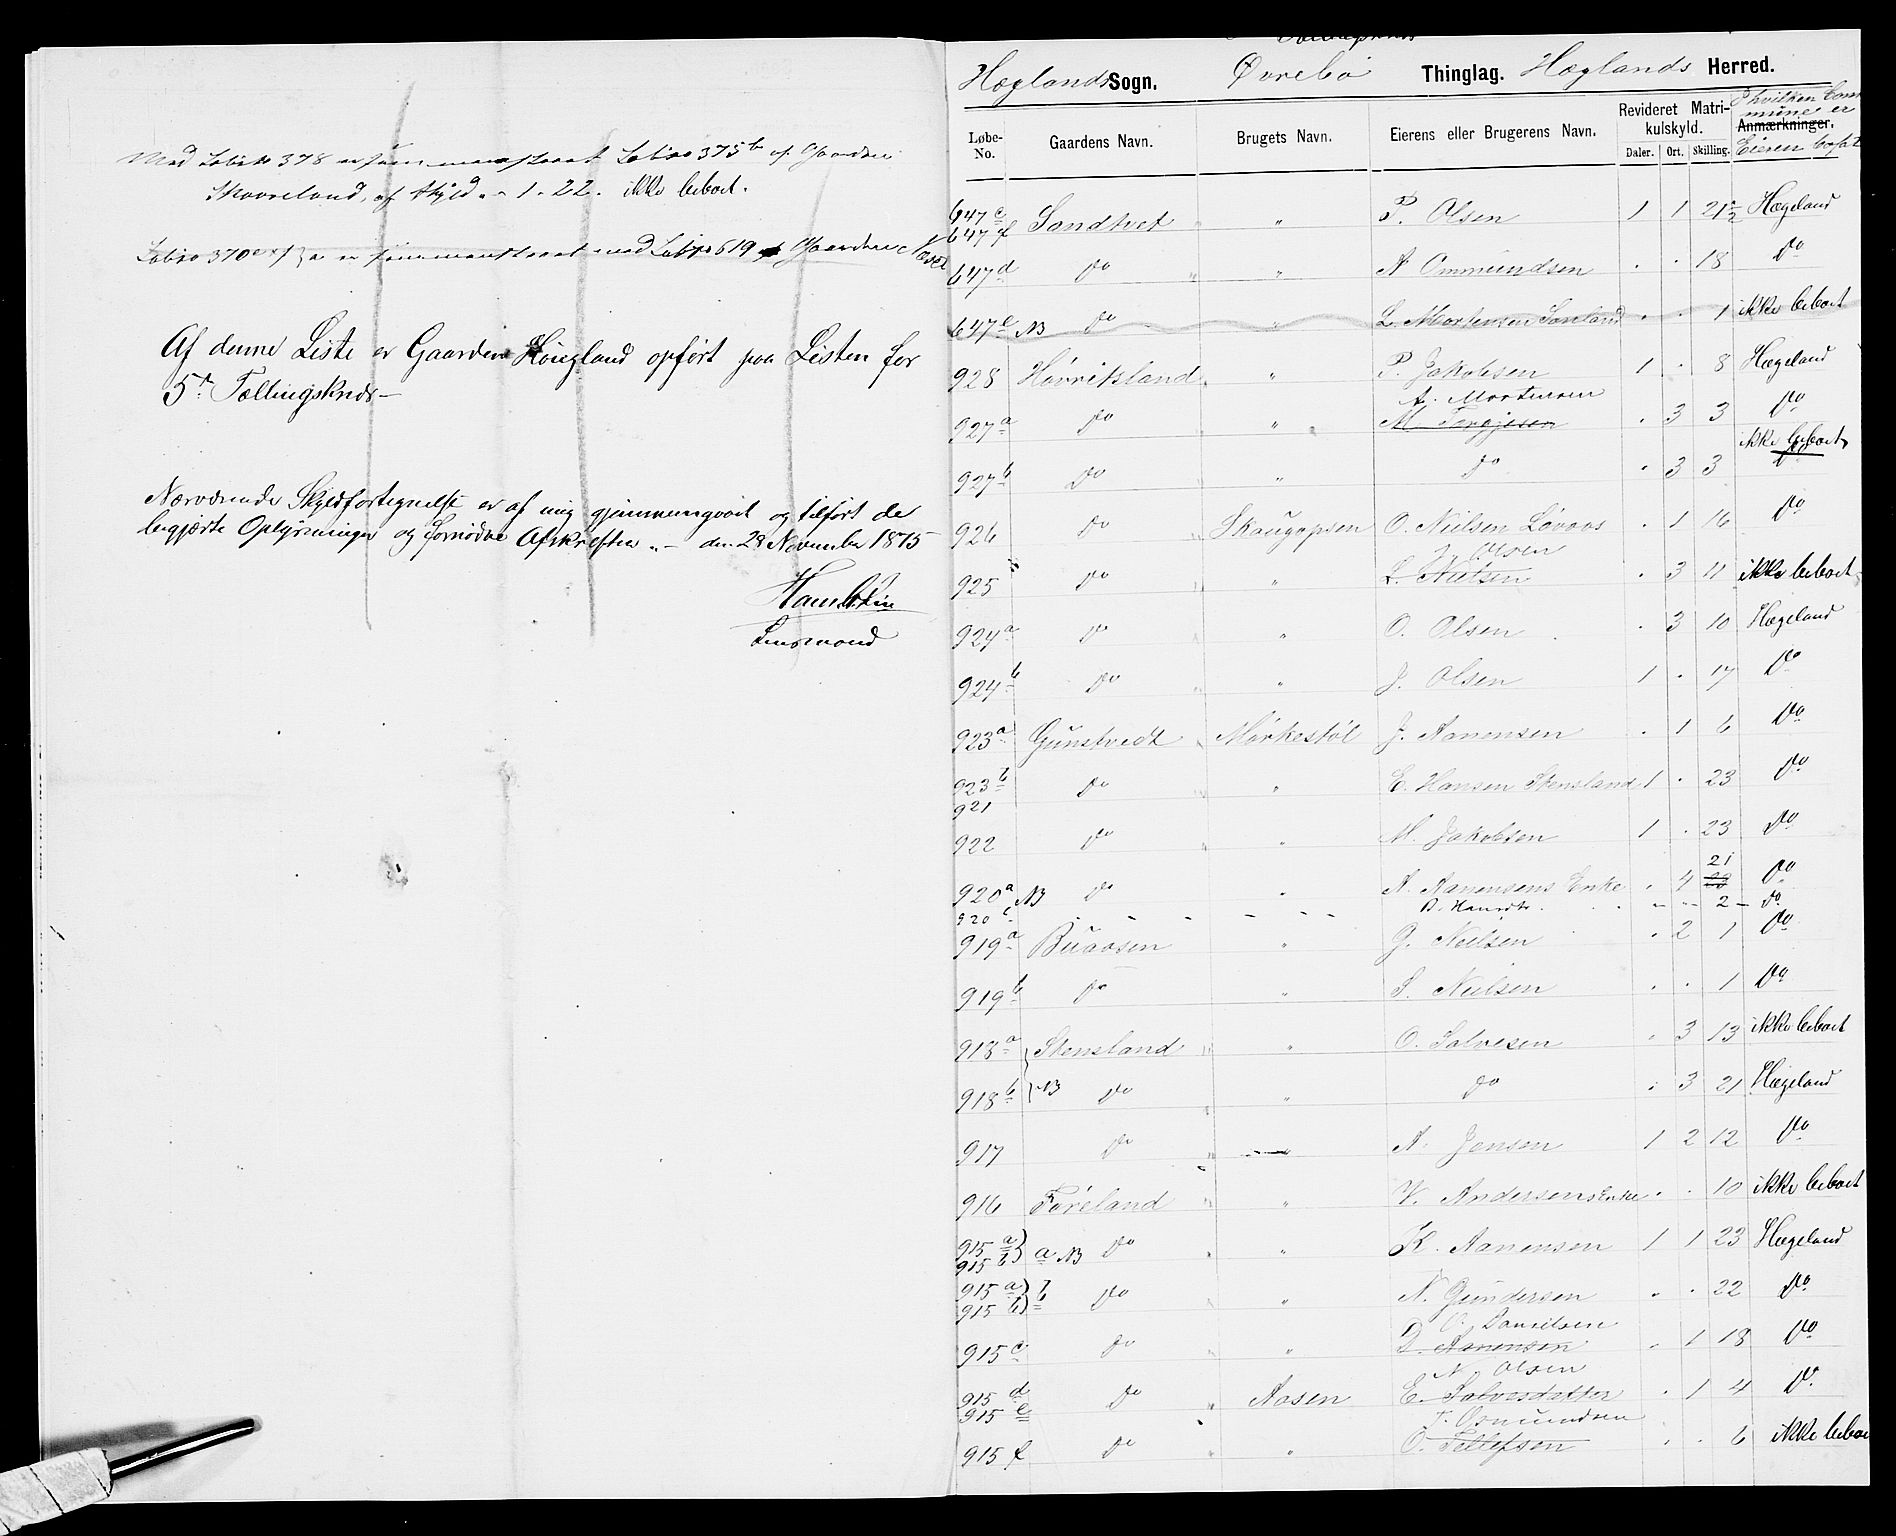 Med Løbno 378 er sammenskaaret Løbno 375b af Gaarden
Skovreland, af Skyld " - 1 - 22. ikke beboet.
Løbno 370 er sammenskaaret med Løbno 619 Gaarden
Af denne Liste er Gaarden Høiegland opført paa Listen for
5te Tællingskreds -
Nærværende Skyldfortegnelse er af mig gjennemgaaet og tilført de
begjærte Oplysninger og fornødne Afskrifter " - den 28 November 1875
Lensmand
Hæglands Sogn. Øvrebø Thinglag. Hæglands Herred.
Løbe-No. Gaardens Navn. Brugets Navn. Eierens eller Brugerens Navn. Revideret Matrikulskyld. Daler. Ort. Skilling. Anmærkninger. I hvilken Commune er Eieren bosat
647c 647f Sandtvet " P. Olsen 1 1 21 1/2 Hægeland
647d Do " A Ommundsen . . 18 Do
647e NB Do " L. Mortensen Sanland . . 1 ikke beboet
928 Hövriksland " P. Jakobsen 1 . 8 Hægeland
A. Mortensen
927a Do " M. Tergjesen . 3 3 Do
927b Do " Do . 3 3 ikke beboet Do
926 Do Skaugopsen O. Nielsen Løvaas . 1 16 Do
J. Olsen
925 Do " L. Nielsen . 3 11 ikke beboet
924a Do " O. Olsen . 3 10 Hægeland
924b Do " J. Olsen 1 . 17 Do
923a Gunstvedt Mörkestöl J. Aanensen . 1 6 Do
923b Do " E. Hansen Stensland 1 . 23 Do
921
922 Do " M. Jakobsen 1 . 23 Do
21
920a NB Do " A. Aanensens Enke . 4 Do
920c - - - - - - - - 2 - Do
919a Buaasen " G. Nielsen . 2 1 Do
919b Do " S. Nielsen . . 1 Do
918a Stensland " O. Salvesen . 3 13 ikke beboet
918b NB Do " Do . 3 21 Hægeland
917 Do " A. Jensen 1 2 12 Do
916 Föreland " V. Andersens Enke . . 10 ikke beboet
915a 915b a NB Do " K. Aanensen 1 1 23 Hægeland
915a 915b b Do " N. Gundersen . . 22 Do
O. Danielsen
915c Do " D. Aanensen . 1 18 Do
N. Olsen
915d 915e Do Aasen E. Salvesdatter . 1 4 Do
T. Osmundsen
915f Do " O. Tellefsen . . 6 ikke beboet